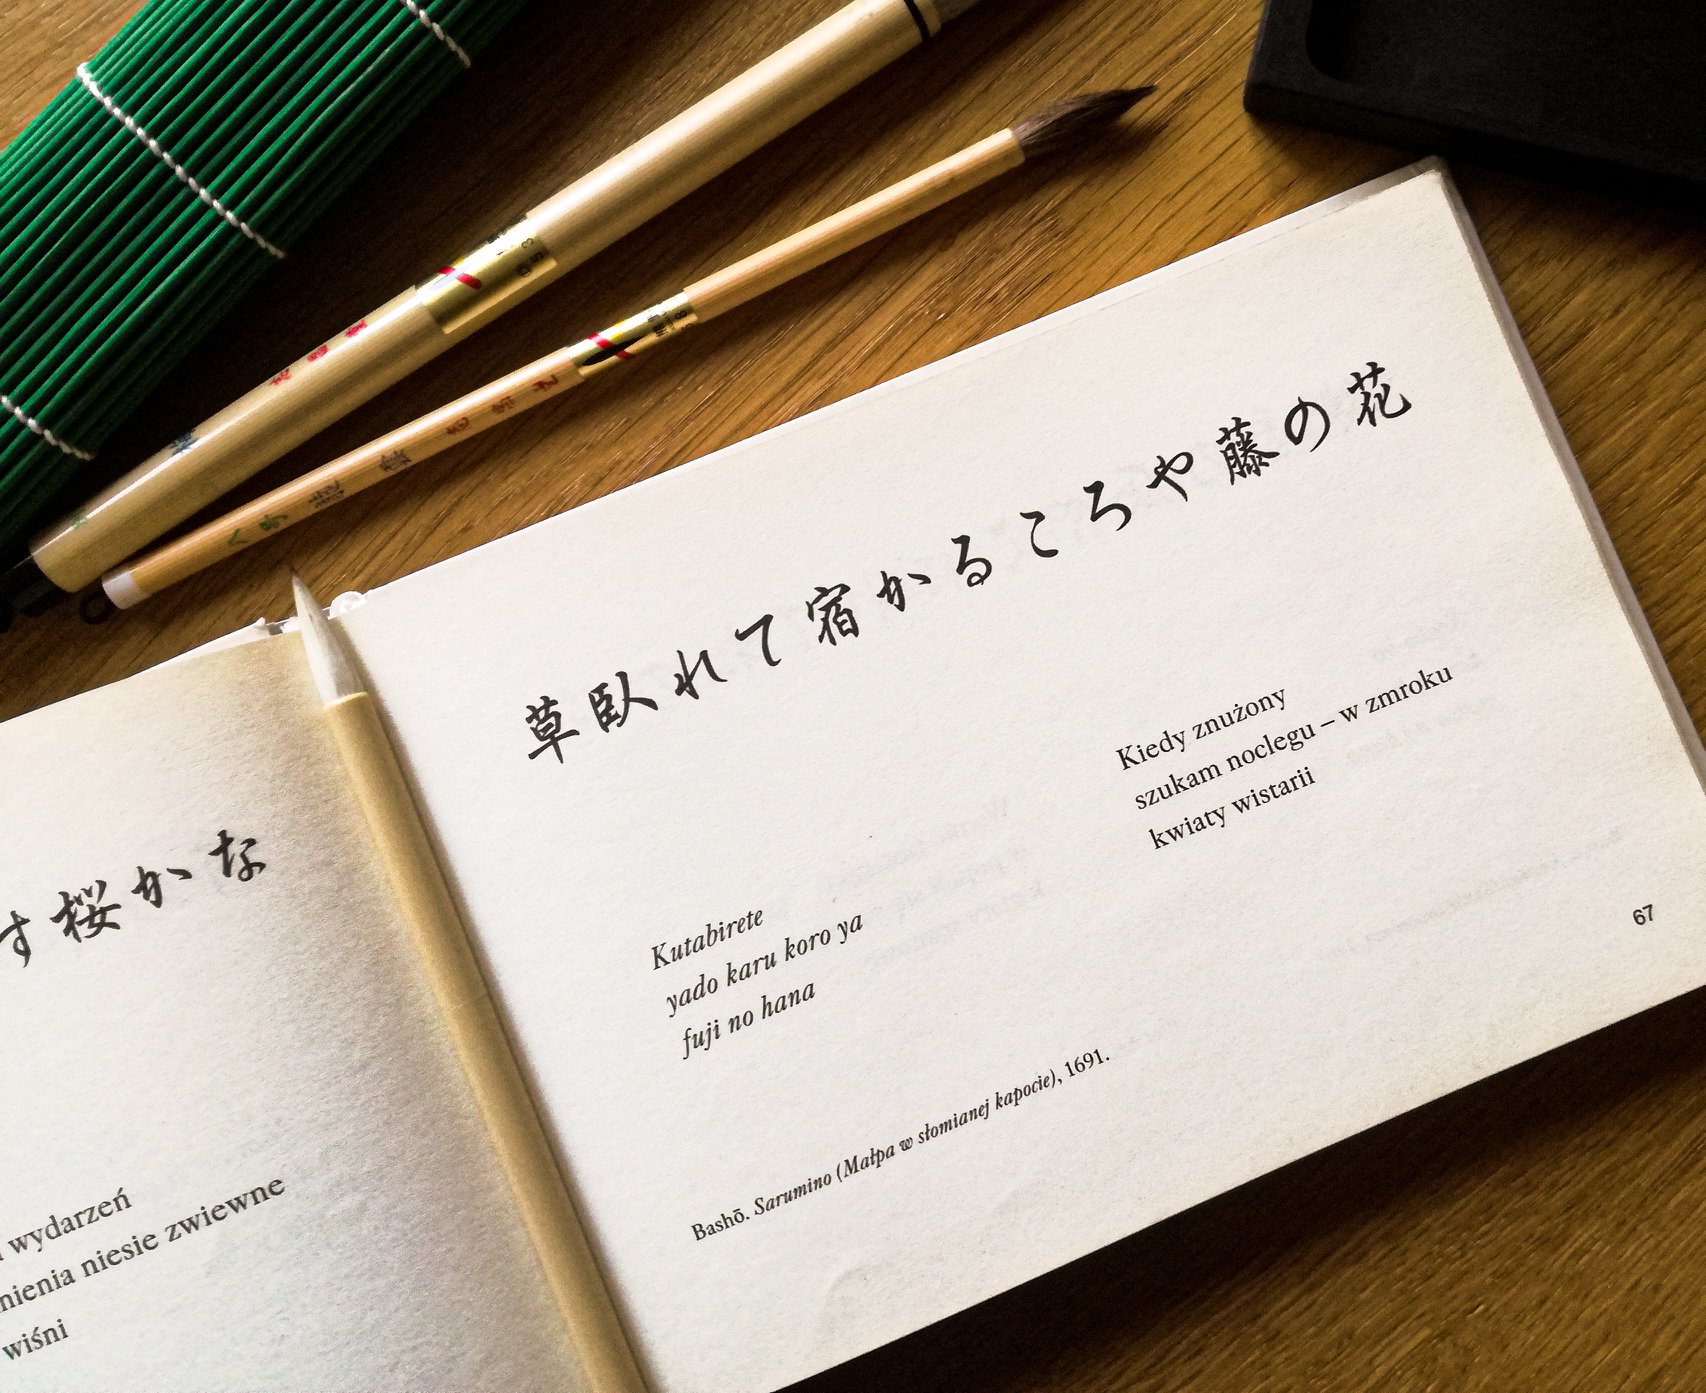 す桜かな
wydarzeń
niesie zwiewne
wiśni
草臥れて宿かるころや藤の花
Kiedy znużony
szukam noclegu – w zmroku
kwiaty wistarii
Kutabirete
yado karu koro ya
fuji no hana
Bashō. Sarumino (Małpa w słomianej kapocie), 1691.
67